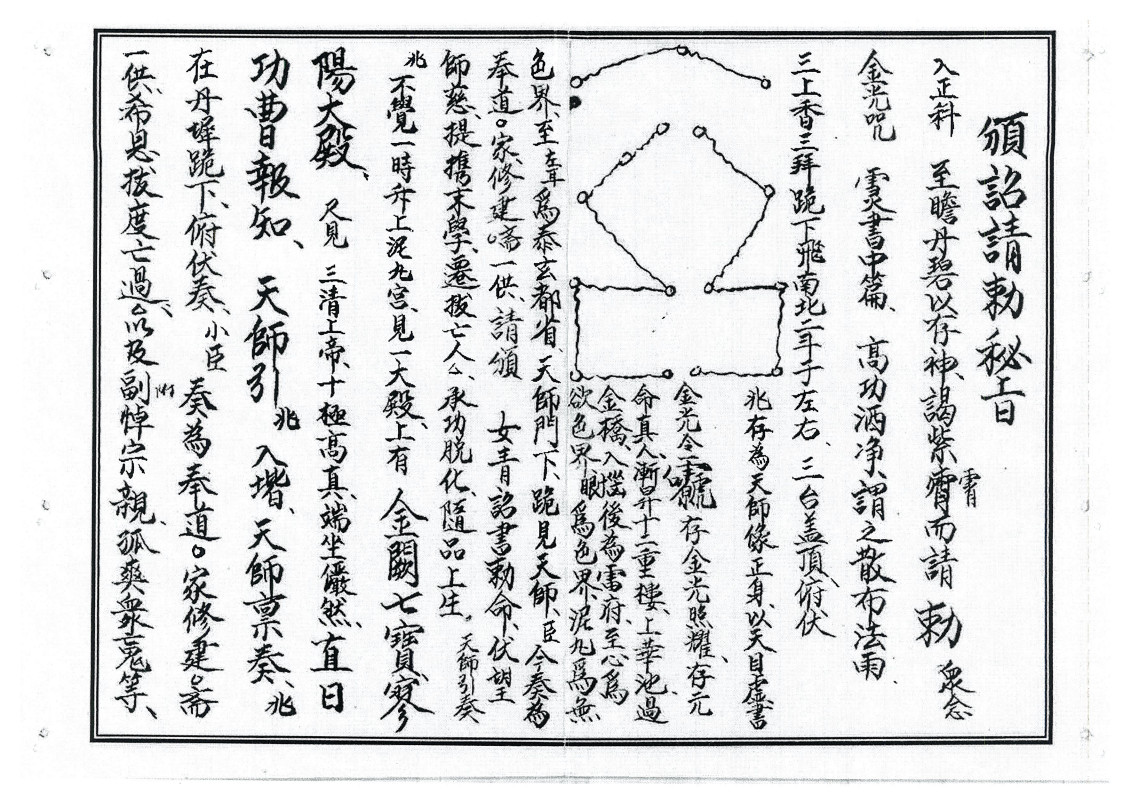 頒詔請勅秘旨
入正科　至瞻丹碧以存神、謁紫霄而請　勅　衆念
金光咒　靈書中篇、　高功洒净、謂之散布法雨、
三上香三拜跪下飛南北二斗于左右、三台盖頂、俯伏
兆存為天師像正身、以天目虚書
金光令　存金光照耀、存元
命真人漸昇十二重樓、上華池、過
金橋、入　後為雷府、至心為
欲色界、眼爲色界、泥丸爲無
色界、至　爲泰玄都省、天師門下、跪見天師、臣今奏為
奉道○家、修建○斋一供、請頒　女青詔書勅命、伏望
師慈、提携末學、遷拔亡人厶、承功脱化、隨品上生。　天師引奏、
兆　不覺一時升上泥丸宫、見一大殿、上有　金闕七寶寥
陽大殿、　只見　三清上帝、十極高真、端坐儼然、直日
功曹報知、　天師引兆　入堦、天師禀奏、兆
在丹墀跪下、俯伏奏、小臣　奏為奉道○家修建○斋
一供、希恩拔度亡過厶以及副悼宗親、孤爽衆鬼等、